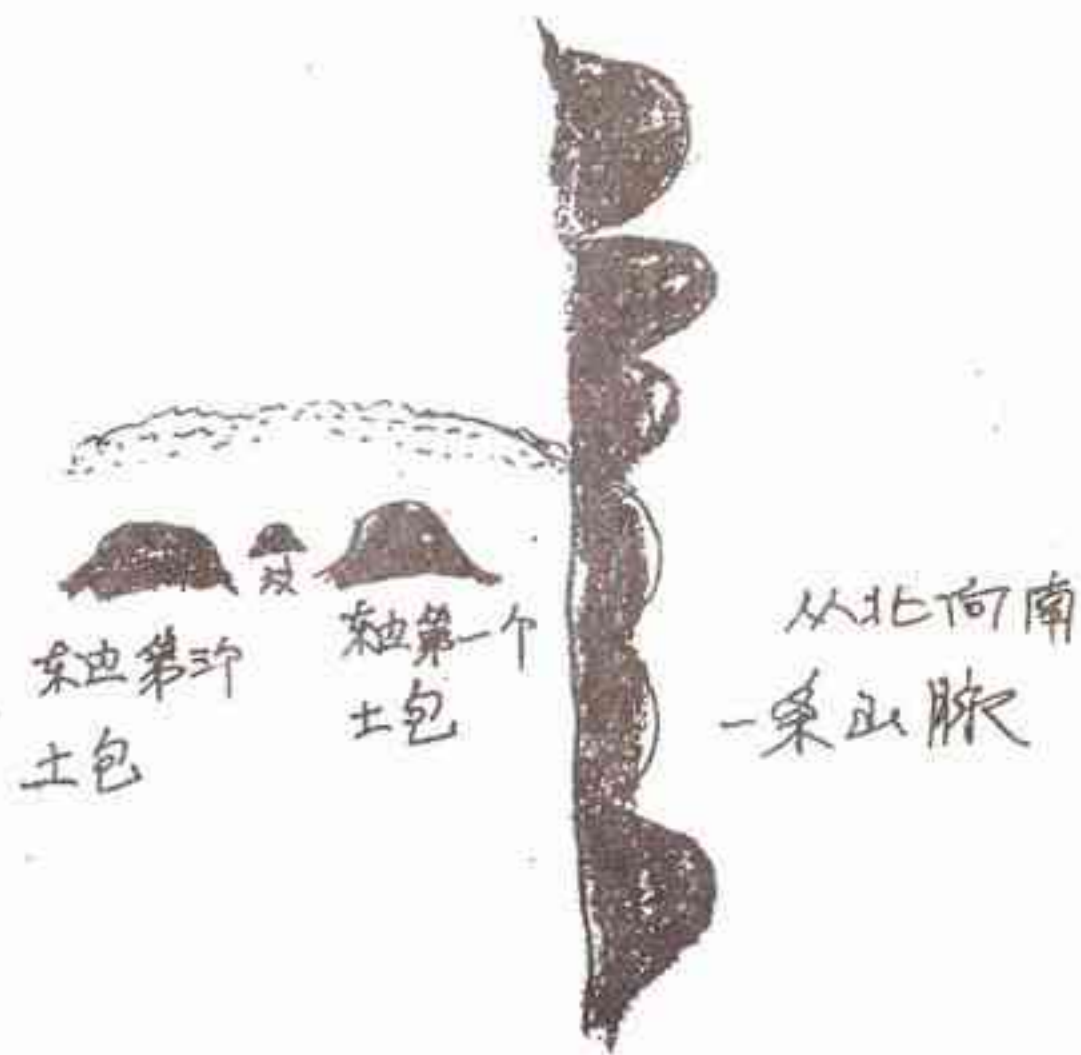 坟
东边第一个
土包
东边第三个
土包
从北向南
一条山脉